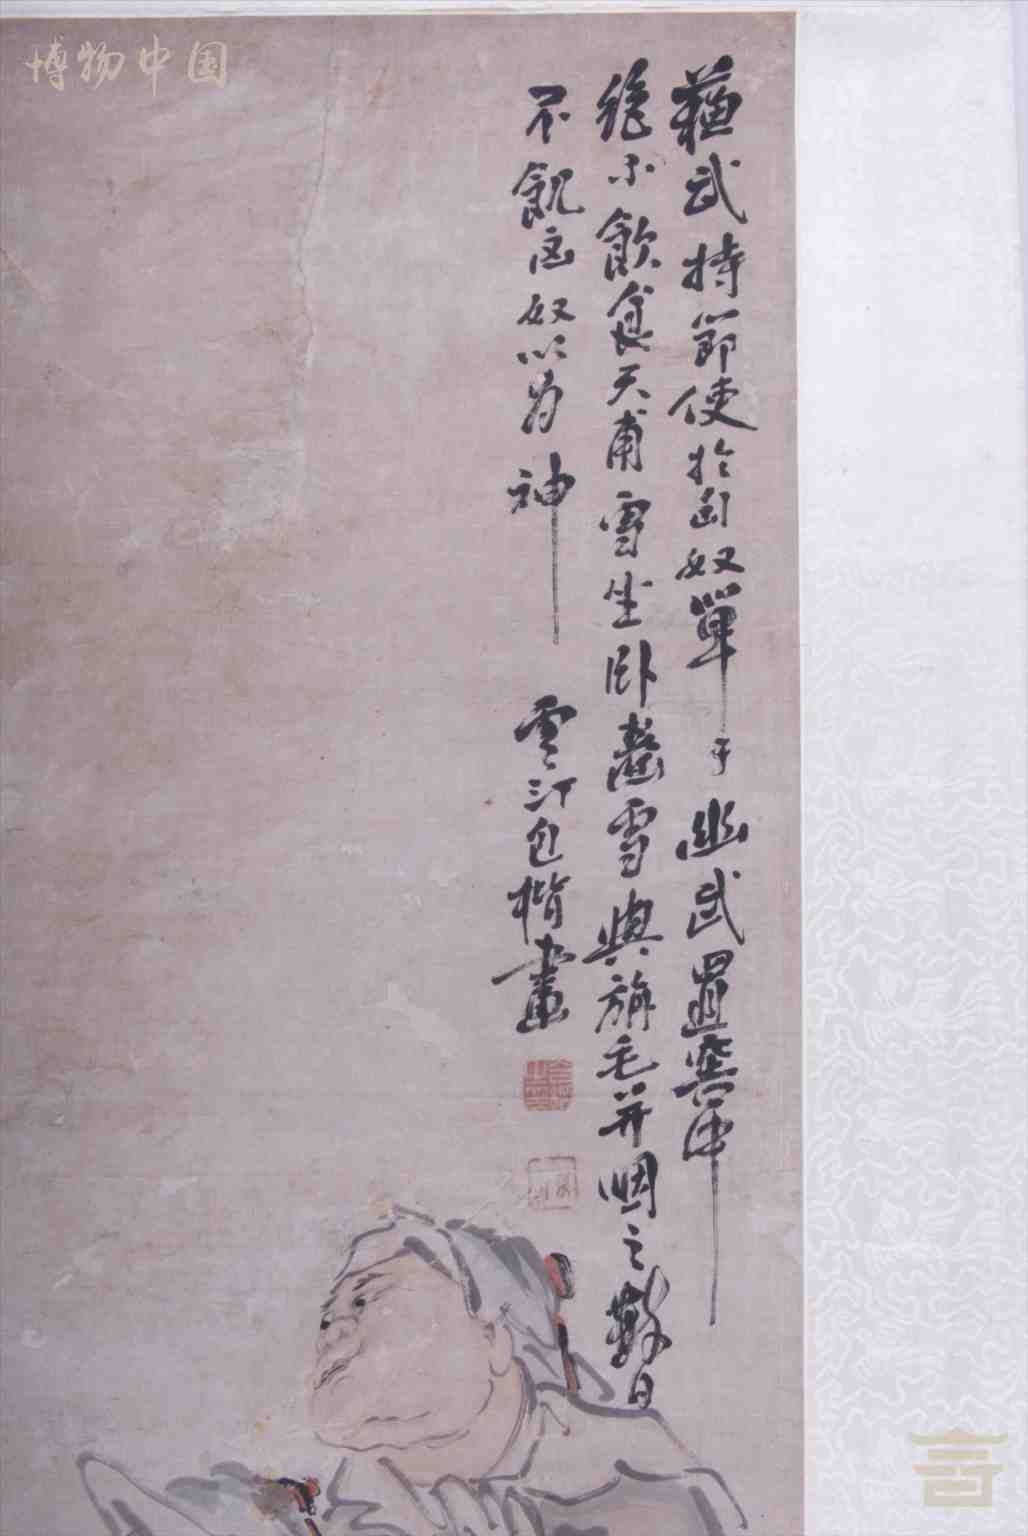 蘓武持節使於匈奴單于幽武置窖中
絕不飲食天雨雪坐臥齧雪與旃毛并咽之數日
不飢匈奴以為神
雲汀包楷畫
博物中国